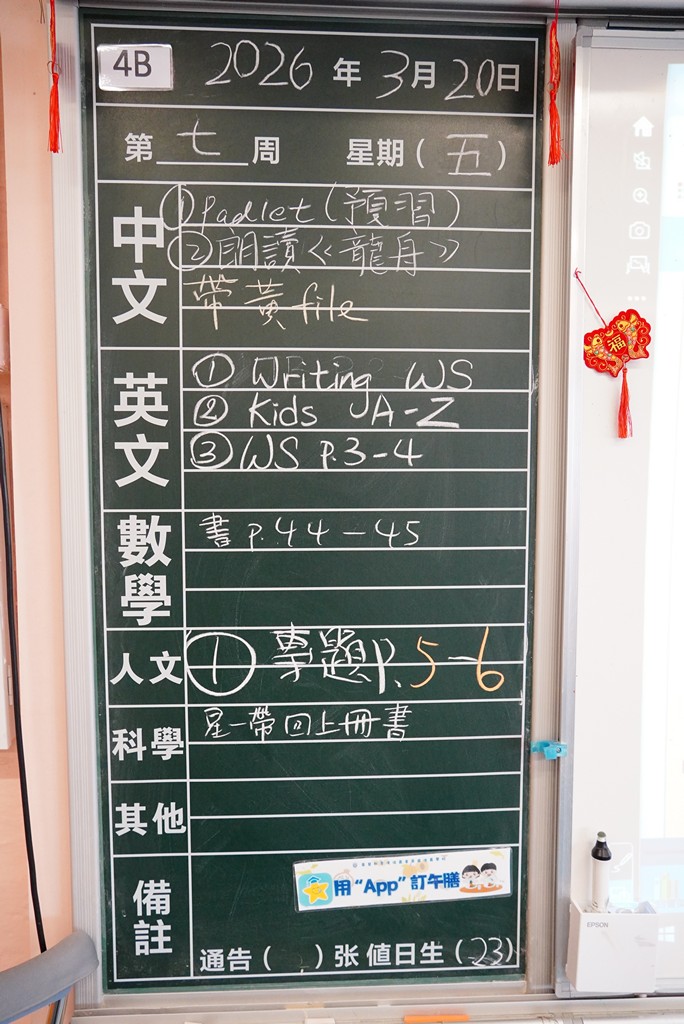 4B 2026年3月20日
第七周 星期(五)
中文
①Padlet(預習)
②朗讀《龍舟》
帶黃file
英文
① Writing WS
② Kids A-Z
③ WS P.3-4
數學
書 P.44-45
人文
① 專題P.5-6
科學
星一帶回上冊書
其他
備註
用“App”訂午膳
通告( )张 值日生(23)
EPSON
福